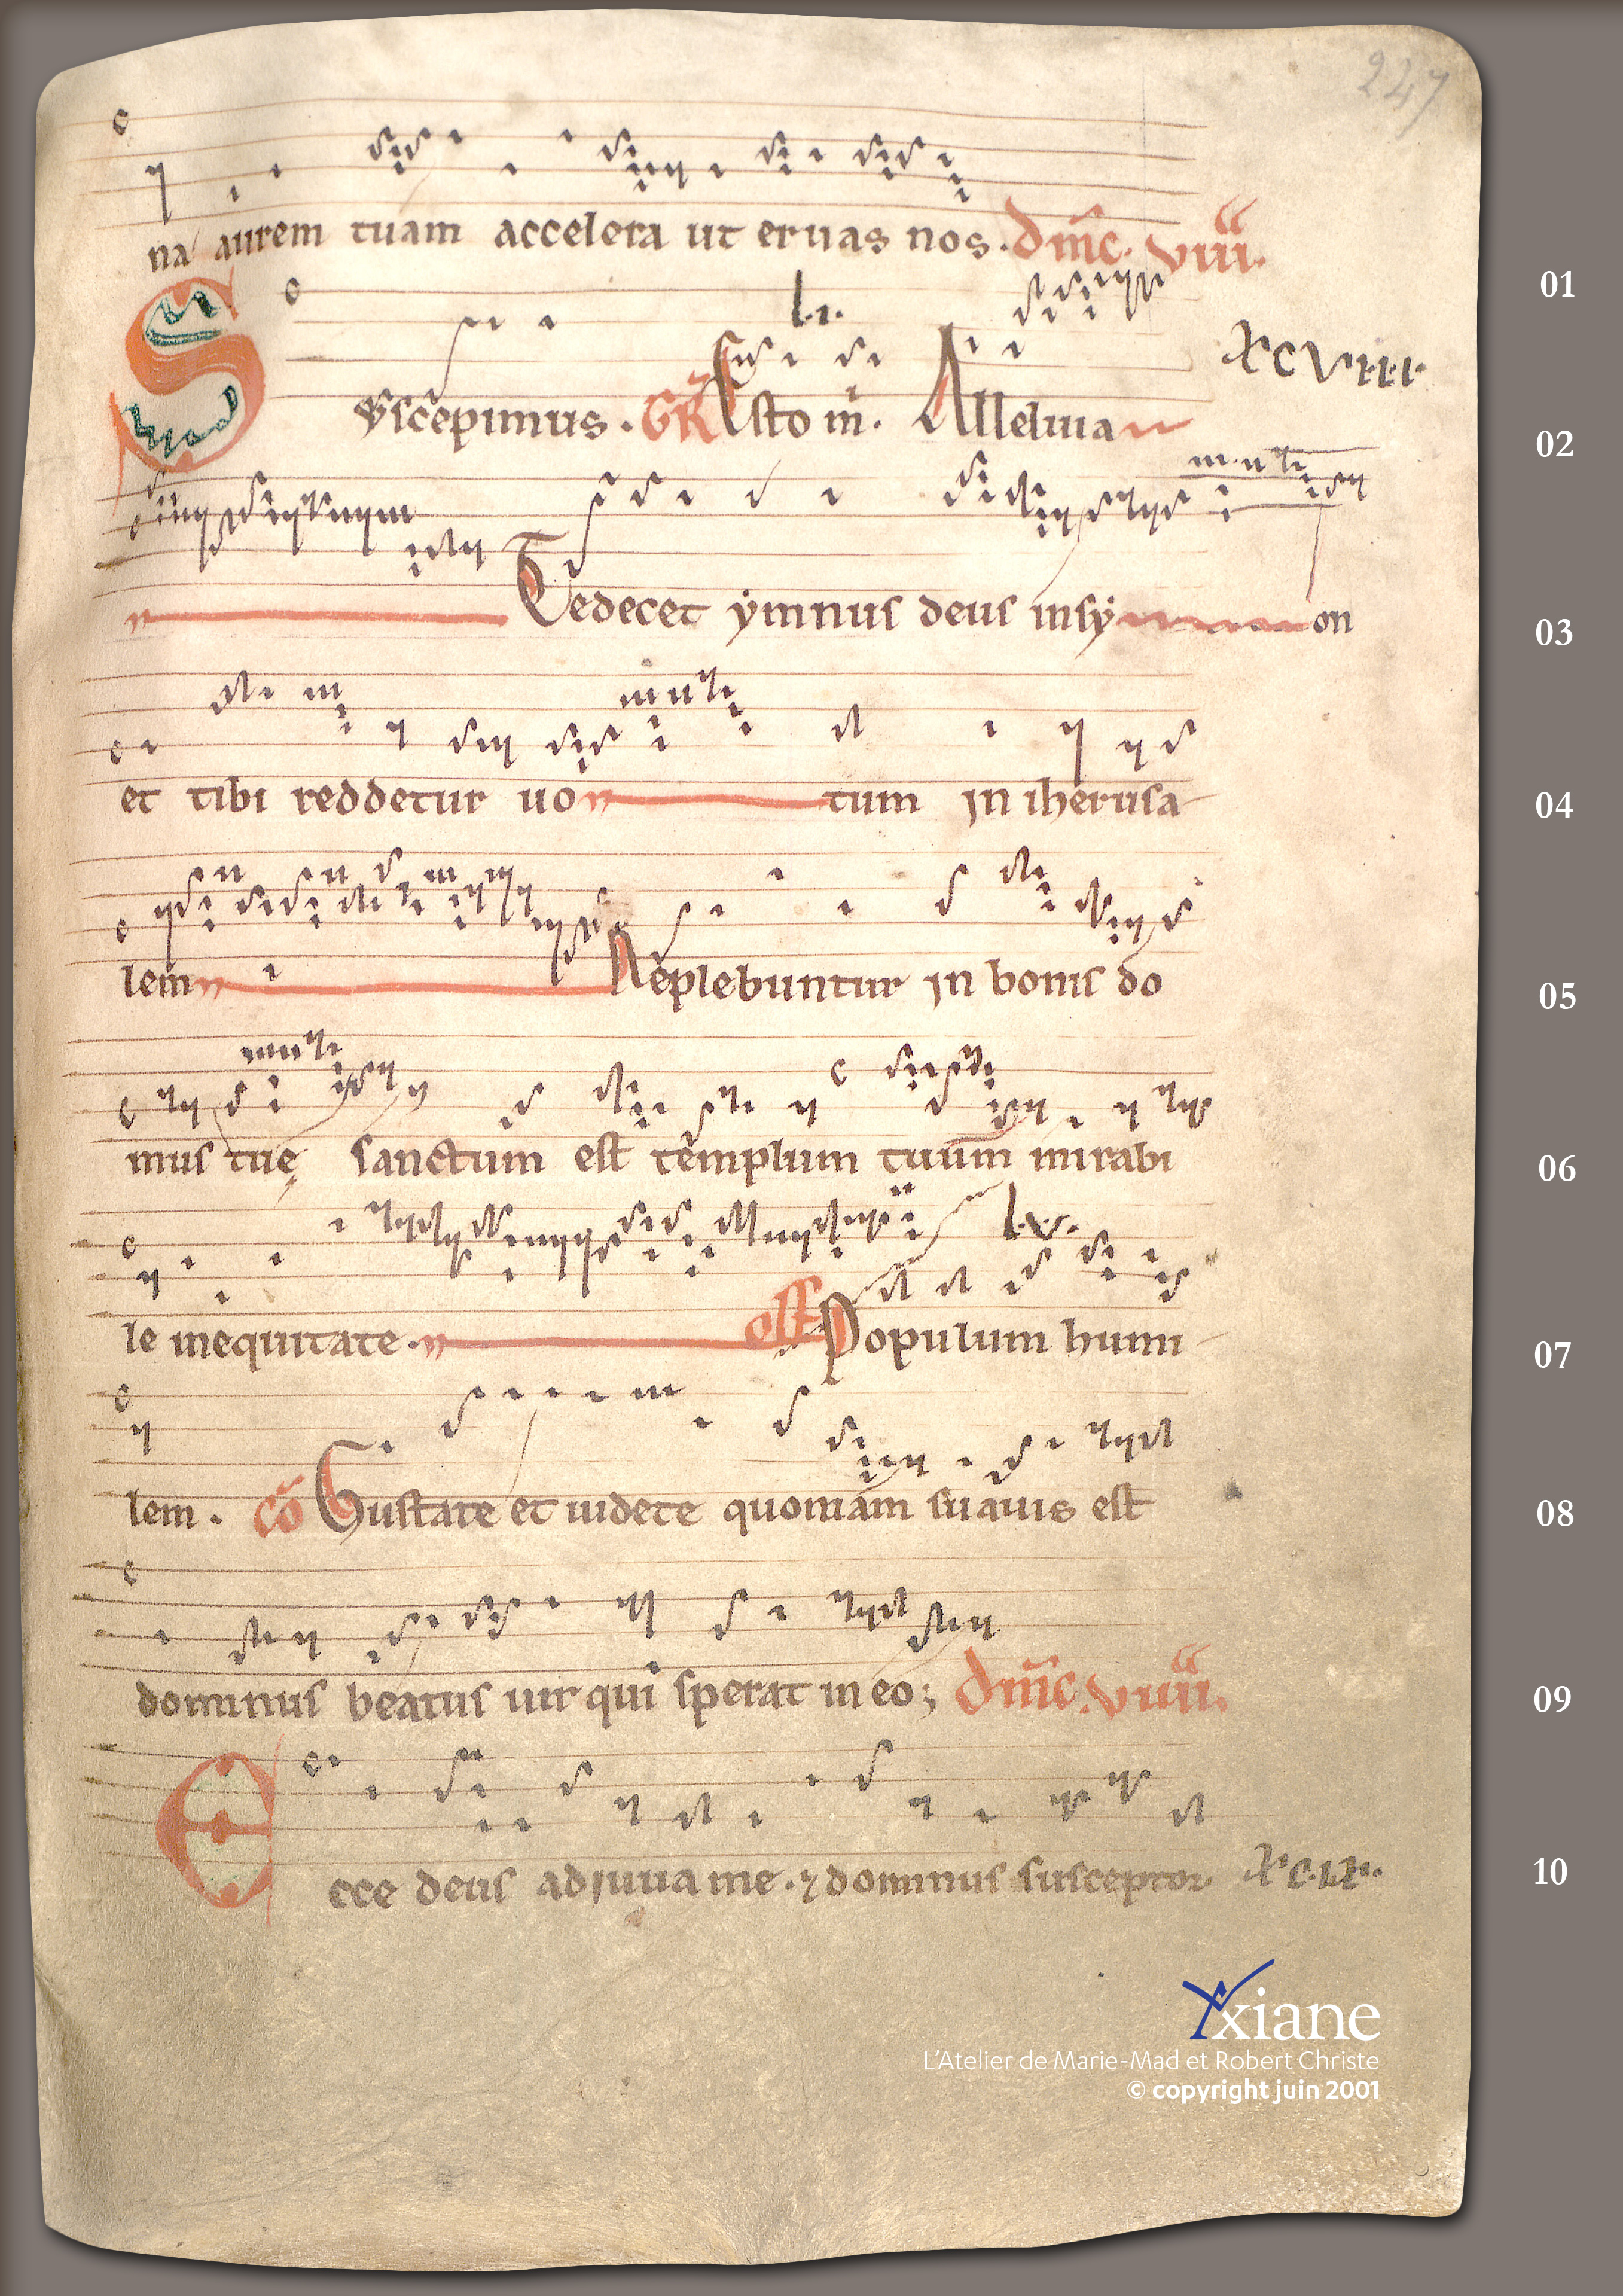 247
na aurem tuam accelera ut eruas nos. dm̄c. viiii.
01
l.i.
Suscepimus. GR Esto m. Alleluia
xcviii
02
Te decet ẏmnus deus insẏ on
03
et tibi reddetur uo tum in iherusa-
04
lem Replebuntur in bonis do
05
mus tuę sanctum est templum tuum mirabi
06
l.v.
le inequitate. off Populum humi-
07
lem. cō Gustate et uidete quoniam suauis est
08
dominus beatus uir qui sperat in eo; dm̄c. viiii.
09
Ecce deus adiuua me. ⁊ dominus susceptor
10
Yxiane
L'Atelier de Marie-Mad et Robert Christe
© copyright juin 2001